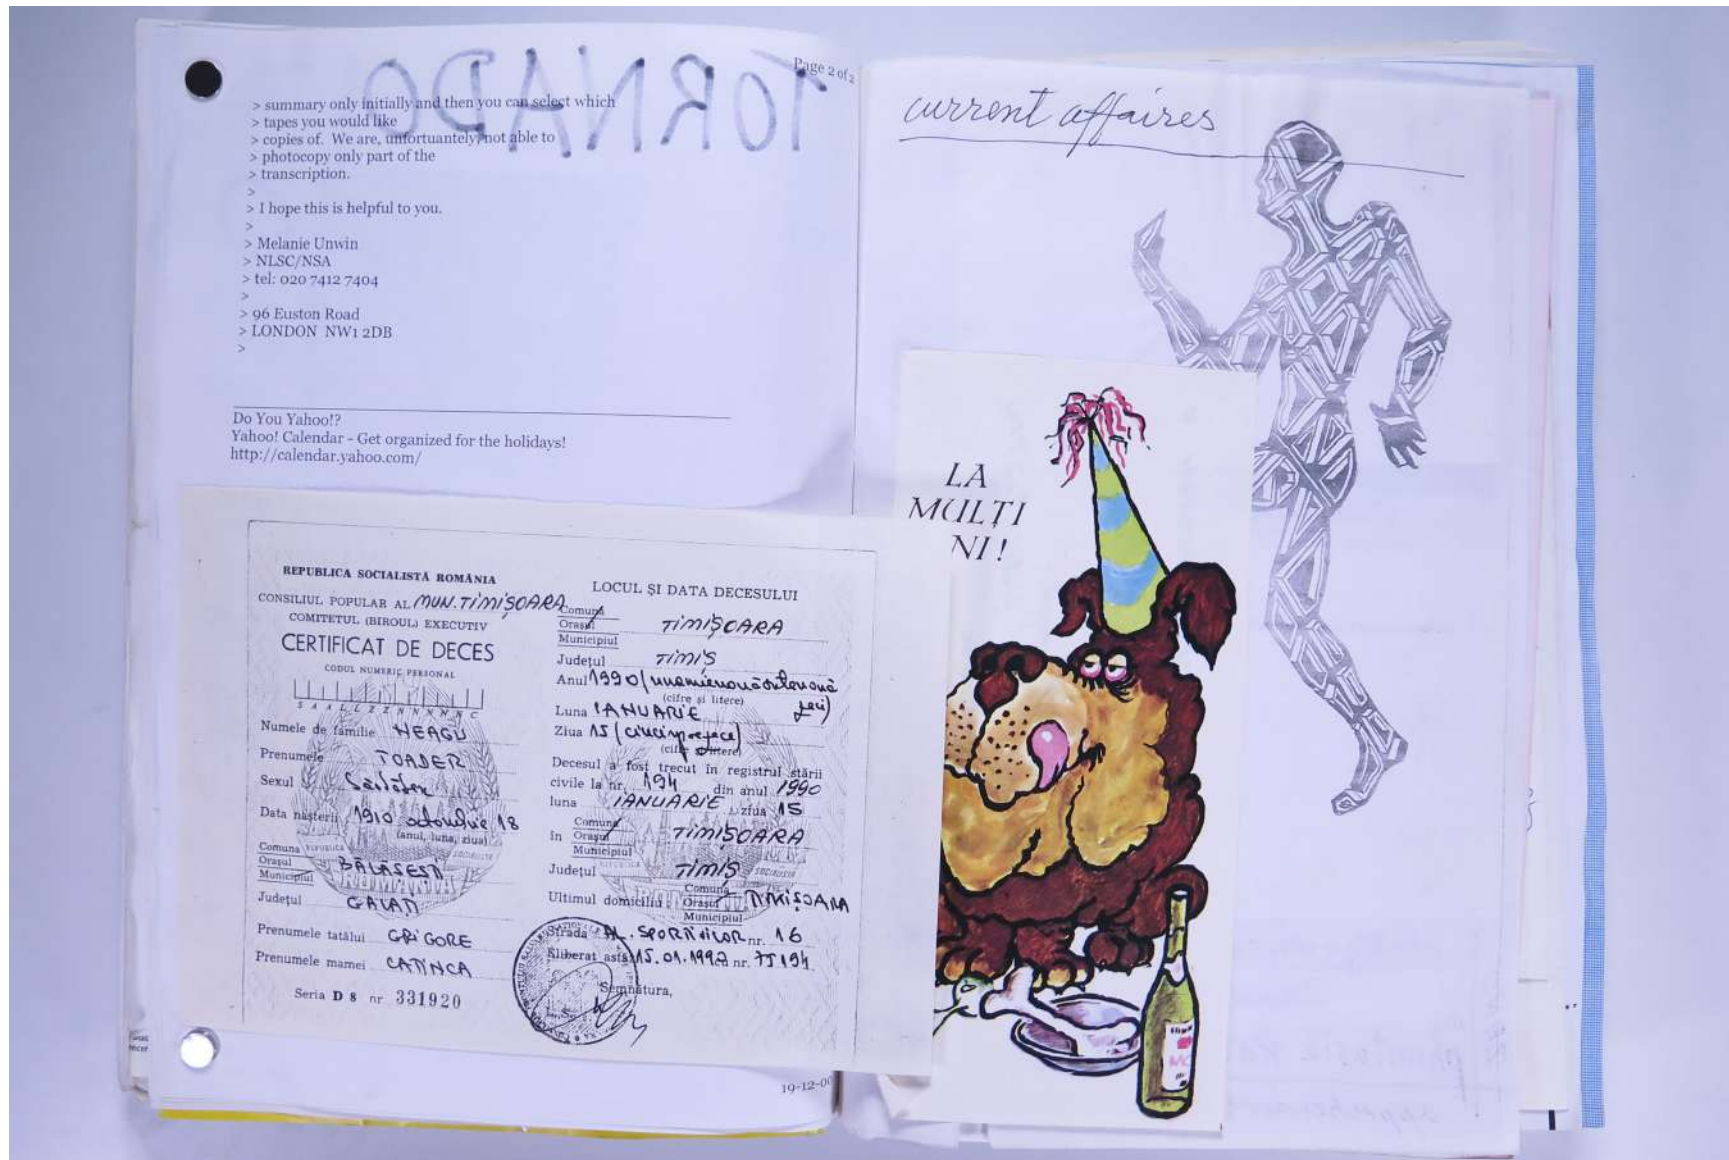 TORNADO
Page 2 of 2
> summary only initially and then you can select which
> tapes you would like
> copies of. We are, unfortuantely, not able to
> photocopy only part of the
> transcription.
>
> I hope this is helpful to you.
>
> Melanie Unwin
> NLSC/NSA
> tel: 020 7412 7404
>
> 96 Euston Road
> LONDON NW1 2DB
>
Do You Yahoo!?
Yahoo! Calendar - Get organized for the holidays!
http://calendar.yahoo.com/
REPUBLICA SOCIALISTĂ ROMÂNIA
CONSILIUL POPULAR AL MUN. TIMIȘOARA
COMITETUL (BIROUL) EXECUTIV
CERTIFICAT DE DECES
CODUL NUMERIC PERSONAL
S A A L L Z Z N N N N N C
Numele de familie NEAGU
Prenumele TOADER
Sexul
Data nașterii 1910 octombrie 18
(anul, luna, ziua)
Comuna
Orașul BĂLĂSEȘTI
Municipiul
Județul GALAȚI
Prenumele tatălui GRIGORE
Prenumele mamei CATINCA
Seria D 8 nr 331920
LOCUL ȘI DATA DECESULUI
Comuna
Orașul TIMIȘOARA
Municipiul
Județul TIMIȘ
Anul 1990 (unamienouăsutenouă
(cifre și litere) zeci)
Luna IANUARIE
Ziua 15 (cincisprezece)
(cifre și litere)
Decesul a fost trecut în registrul stării
civile la nr. 194 din anul 1990
luna IANUARIE ziua 15
Comuna
în Orașul TIMIȘOARA
Municipiul
Județul TIMIȘ
Comuna
Ultimul domiciliu: Orașul TIMIȘOARA
Municipiul
Strada AL. SPORTIVILOR nr. 16
Eliberat astăzi 15.01.1990 nr. 75194
Semnătura,
19-12-00
current affaires
LA
MULȚI
NI!